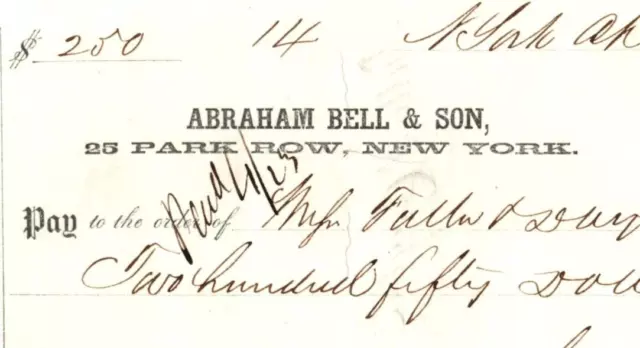 $ 250 14 N York Ap
ABRAHAM BELL & SON,
25 PARK ROW, NEW YORK.
Pay to the order of Messrs Fuller & Day
Two hundred fifty Doll